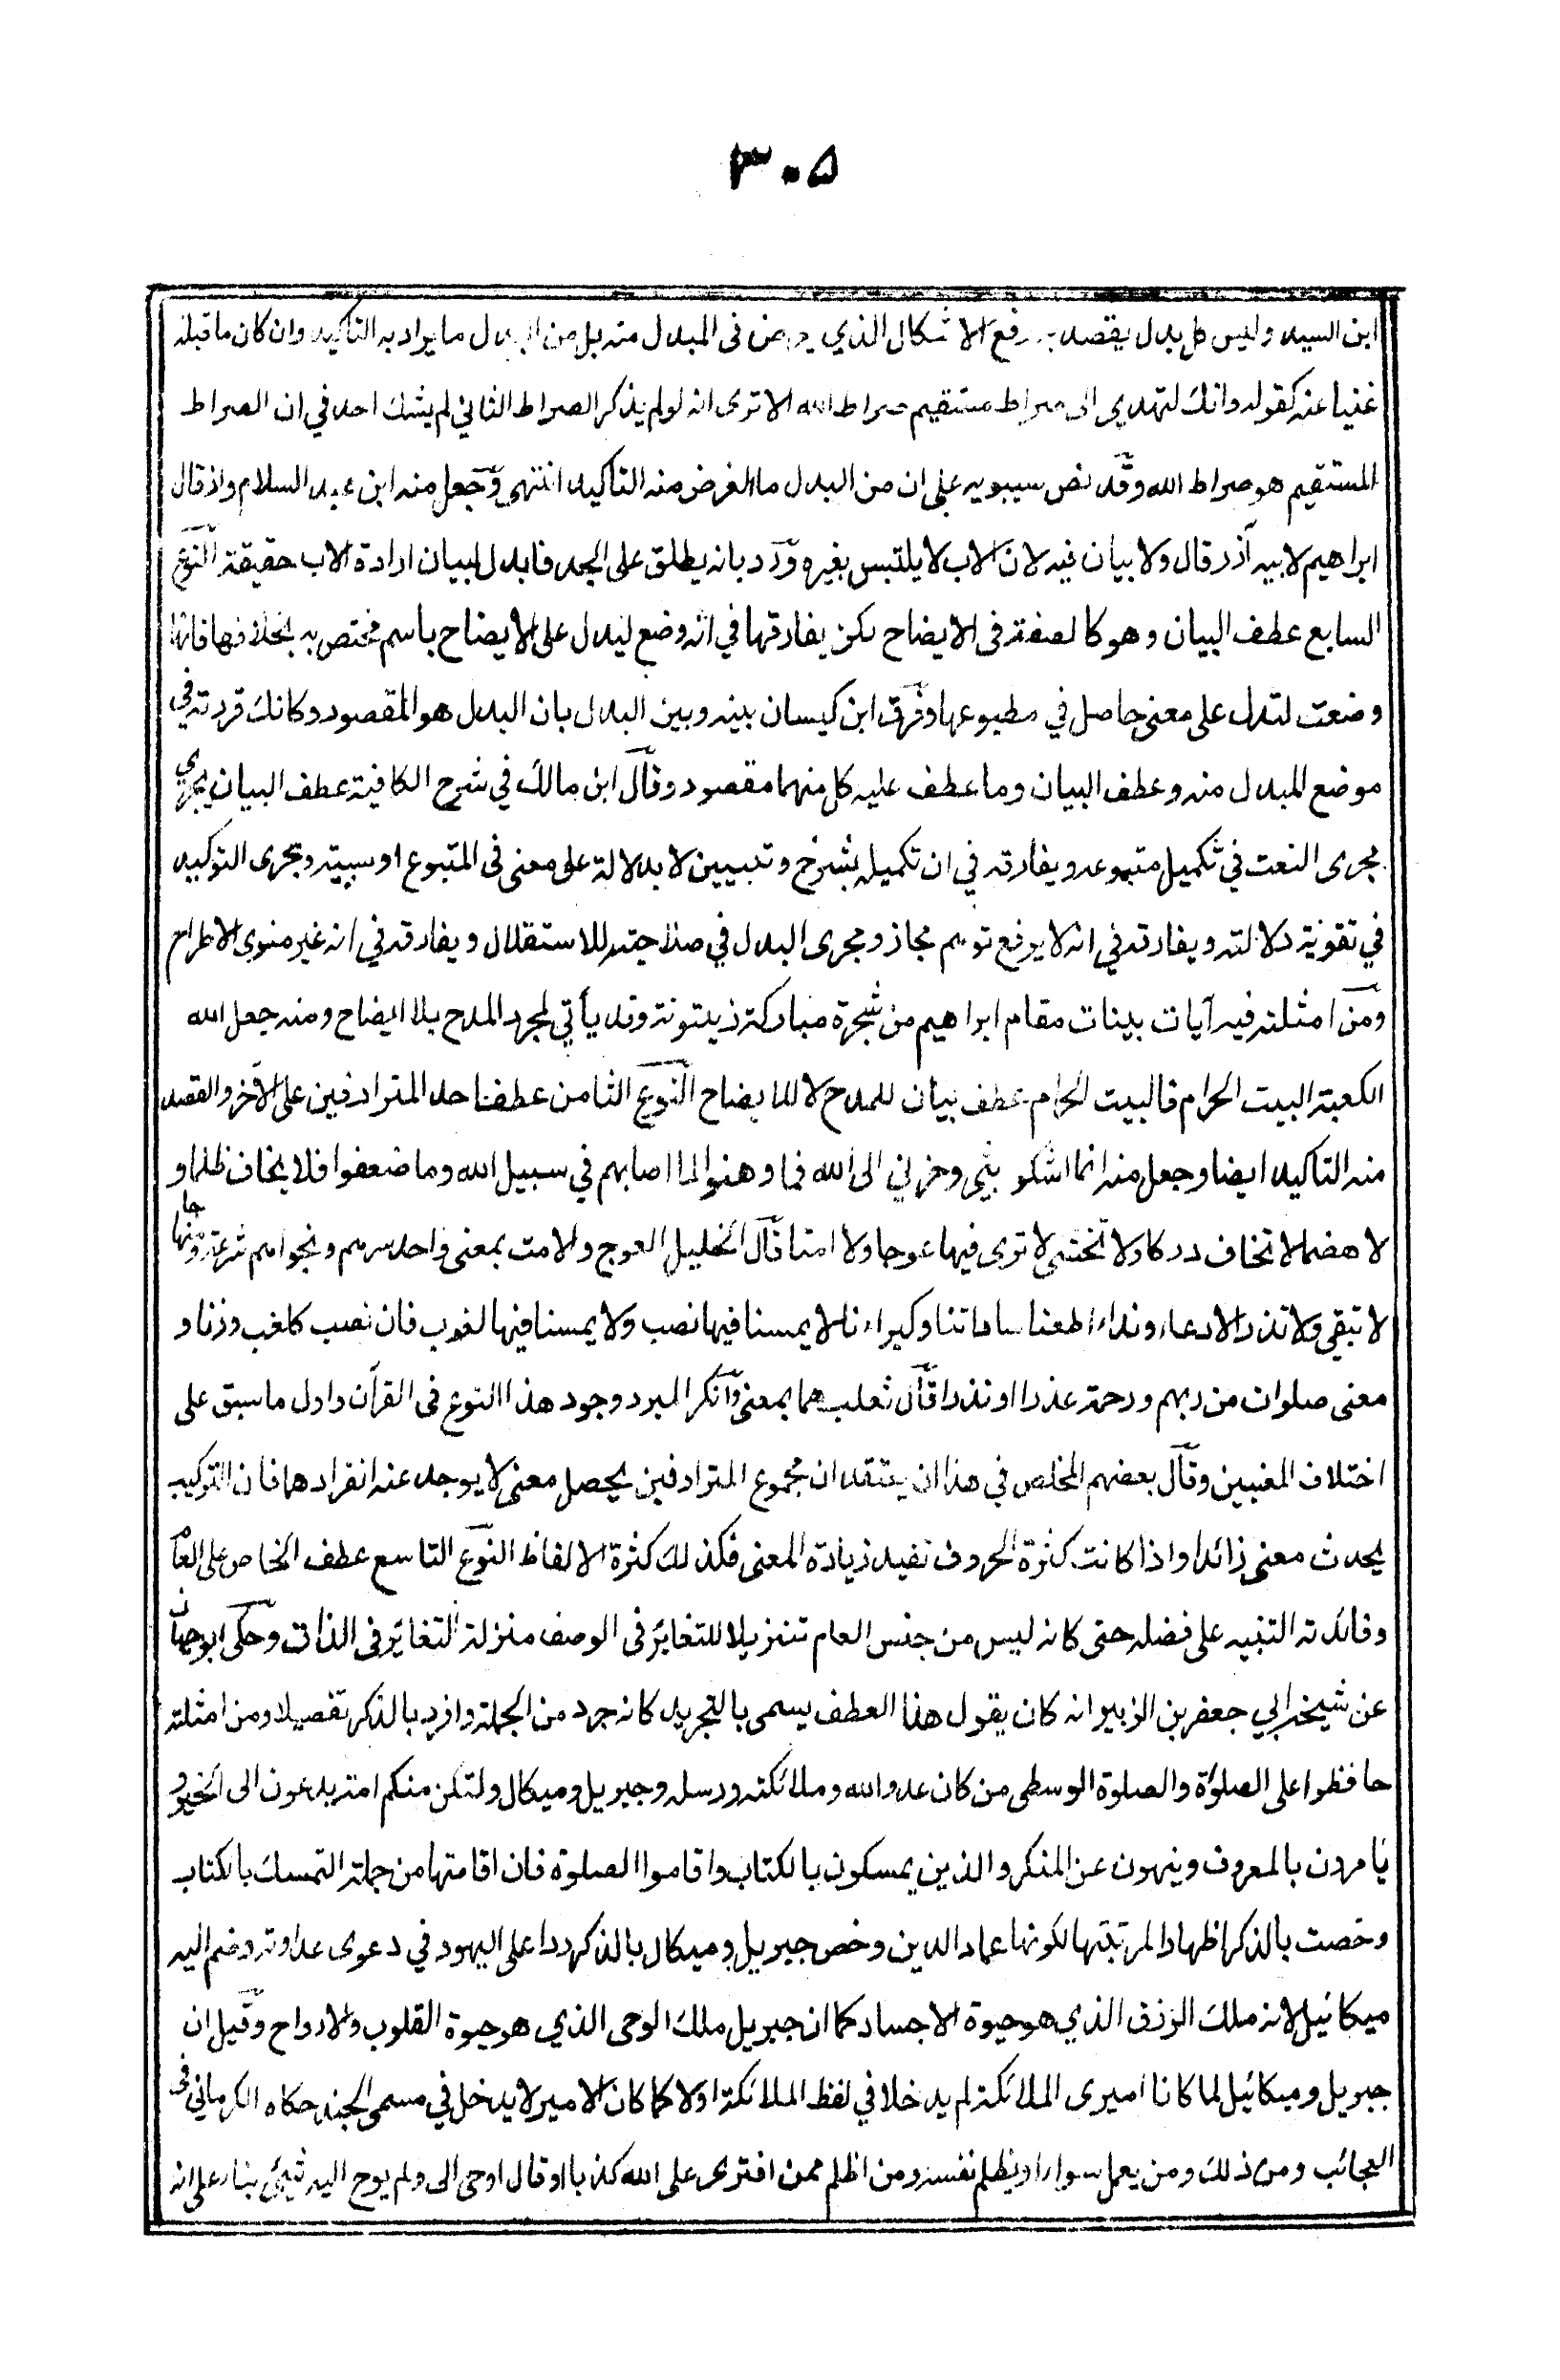 ۳۰۵
ابن السيد وليس كل بدل يقصد به رفع الاشكال الذي يعرض فى المبدل منه بل من البدل ما يراد به التاكيد وان كان ما قبله
غنيا عنه كقوله وانك لتهدي الى صراط مستقيم صراط الله الا ترى انه لو لم يذكر الصراط الثاني لم يشك احد في ان الصراط
المستقيم هو صراط الله وقد نص سيبويه على ان من البدل ما الغرض منه التاكيد انتهى وجعل منه ابن عبد السلام واذ قال
ابراهيم لابيه آذر قال ولا بيان فيه لان الاب لا يلتبس بغيره ورد بانه يطلق على الجد فابدل لبيان ارادة الاب حقيقة النوع
السابع عطف البيان وهو كالصفة فى الايضاح لكن يفارقها في انه وضع ليدل على الايضاح باسم مختص به بخلافها فانها
وضعت لتدل على معنى حاصل في مطبوعها وفرق ابن كيسان بينه وبين البدل بان البدل هو المقصود وكانك قررته في
موضع المبدل منه وعطف البيان وما عطف عليه كل منهما مقصود وقال ابن مالك في شرح الكافية عطف البيان يجري
مجرى النعت في تكميل متبوعه ويفارقه في ان تكميله بشرح وتبيين لا بدلالة على معنى فى المتبوع او سببيته ومجرى التوكيد
في تقوية دلالته ويفارقه في انه لا يرفع توهم مجاز ومجرى البدل في صلاحيته للاستقلال ويفارقه في انه غير منوى الاطراح
ومن امثلته فيه آيات بينات مقام ابراهيم من شجرة مباركة زيتونة وقد يأتي لمجرد المدح بلا ايضاح ومنه جعل الله
الكعبة البيت الحرام فالبيت الحرام عطف بيان للمدح لا للايضاح النوع الثامن عطف احد المترادفين على الآخر والقصد
منه التاكيد ايضا وجعل منه انما اشكو بثي وحزني الى الله فما وهنوا لما اصابهم في سبيل الله وما ضعفوا فلا يخاف ظلما و
لا هضما لا تخاف دركا ولا تخشى لا ترى فيها عوجا ولا امتا قال الخليل العوج والامت بمعنى واحد سرهم ونجواهم شرعة ومنهاجا
لا تبقي ولا تذر الا دعاء ونداء اطعنا ساداتنا وكبراءنا لا يمسنا فيها نصب ولا يمسنا فيها لغوب فان نصب كلغب وزنا و
معنى صلوات من ربهم ورحمة عذرا او نذرا قال ثعلب هما بمعنى وانكر المبرد وجود هذا النوع فى القرآن واول ما سبق على
اختلاف المعنيين وقال بعضهم المخلص في هذا ان يعتقد ان مجموع المترادفين يحصل معنى لا يوجد عند انفرادهما فان التركيب
يحدث معنى زائدا واذا كانت كثرة الحروف تفيد زيادة المعنى فكذلك كثرة الالفاظ النوع التاسع عطف الخاص على العام
وفائدته التنبيه على فضله حتى كانه ليس من جنس العام تنزيلا للتغائر فى الوصف منزلة التغائر فى الذات وحكى ابو حيان
عن شيخه ابي جعفر بن الزبير انه كان يقول هذا العطف يسمى بالتجريد كانه جرد من الجملة وافرد بالذكر تفصيلا ومن امثلته
حافظوا على الصلوة والصلوة الوسطى من كان عدوا لله وملائكته ورسله وجبريل وميكال ولتكن منكم امة يدعون الى الخير و
يامرون بالمعروف وينهون عن المنكر والذين يمسكون بالكتاب واقاموا الصلوة فان اقامتها من جملة التمسك بالكتاب
وخصت بالذكر اظهارا لمرتبتها لكونها عماد الدين وخص جبريل وميكال بالذكر ردا على اليهود في دعوى عداوته وضم اليه
ميكائيل لانه ملك الرزق الذي هو حيوة الاجساد كما ان جبريل ملك الوحى الذي هو حيوة القلوب والارواح وقيل ان
جبريل وميكائيل لما كانا اميرى الملائكة لم يدخلا في لفظ الملائكة اولا كما كان الامير لا يدخل في مسمى الجند حكاه الكرماني فى
العجائب ومن ذلك ومن يعمل سوءا او يظلم نفسه ومن اظلم ممن افترى على الله كذبا او قال اوحى الى ولم يوح اليه شيئ بناء على انه